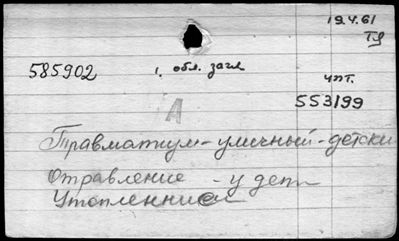 19.4.61
ТД
585902 1. обл. загл
чпт.
553199
А
Травматизм - уличный - детский
Отравление - у дет
Утопленники